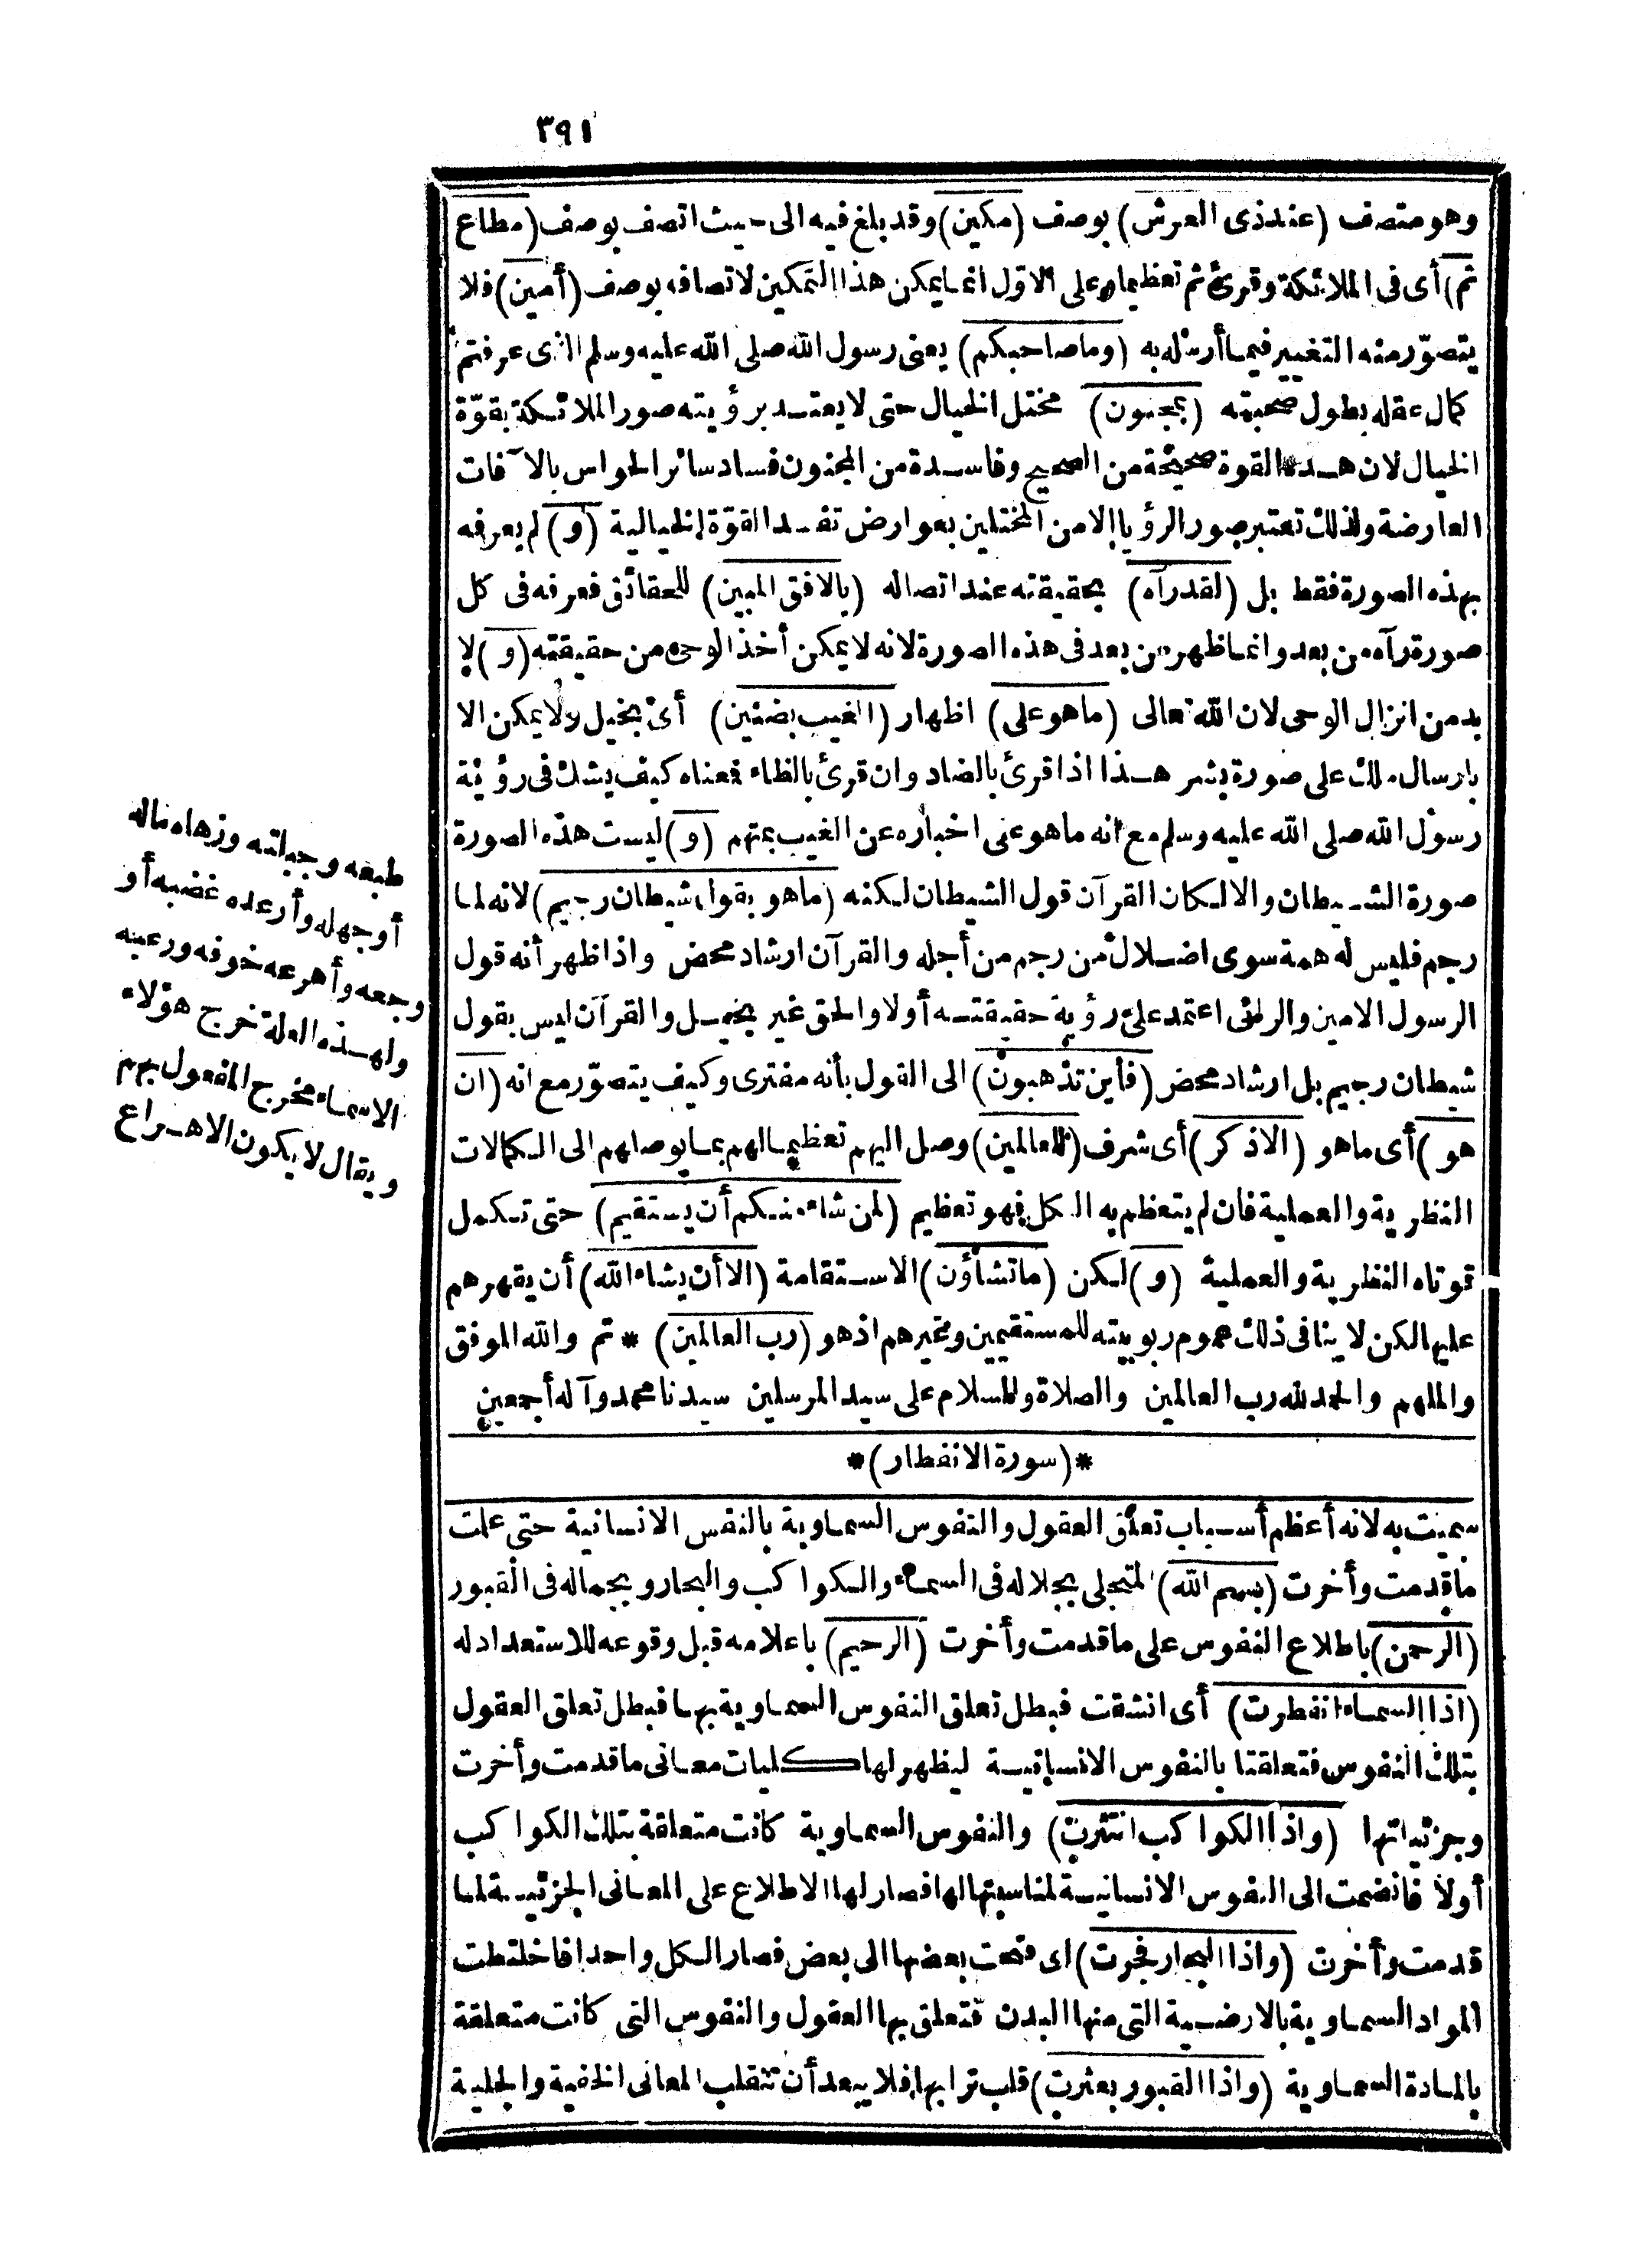 ٣٩١
وهو متصف (عند ذى العرش) بوصف (مكين) وقد بلغ فيه الى حيث اتصف بوصف (مطاع
ثم) أى فى الملائكة وقرئ ثم تعظيما وعلى الاول انما يمكن هذا التمكين لاتصافه بوصف (أمين) فلا
يتصوّر منه التغيير فيما أرسل به (وما صاحبكم) يعنى رسول الله صلى الله عليه وسلم الذى عرفتم
كمال عقله بطول صحبته (بمجنون) مختل الخيال حتى لا يعتد برؤيته صور الملائكة بقوّة
الخيال لان هذه القوة صحيحة من الصحيح وفاسدة من المجنون فساد سائر الحواس بالآفات
العارضة ولذلك تعتبر صور الرؤيا الا من المختلين بعوارض تفسد القوّة الخيالية (و) لم يعرفه
بهذه الصورة فقط بل (لقد رآه) بحقيقته عند اتصاله (بالافق المبين) للحقائق فعرفه فى كل
صورة رآه من بعد وانما ظهر من بعد فى هذه الصورة لانه لا يمكن أخذ الوحى من حقيقته (و) لا
بد من انزال الوحى لان الله تعالى (ما هو على) اظهار (الغيب بضنين) أى بخيل ولا يمكن الا
بارسال ملك على صورة بشر هذا اذا قرئ بالضاد وان قرئ بالظاء فمعناه كيف يشك فى رؤية
رسول الله صلى الله عليه وسلم مع انه ما هو على اخباره عن الغيب بمتهم (و) ليست هذه الصورة
صورة الشيطان والا لكان القرآن قول الشيطان لكنه (ما هو بقول شيطان رجيم) لانه لما
رجم فليس له همة سوى اضلال من رجم من أجله والقرآن ارشاد محض واذا ظهر أنه قول
الرسول الامين والرائى اعتمد على رؤية حقيقته أولا والحق غير بخيل والقرآن ليس بقول
شيطان رجيم بل ارشاد محض (فأين تذهبون) الى القول بأنه مفترى وكيف يتصوّر مع انه (ان
هو) أى ما هو (الا ذكر) أى شرف (للعالمين) وصل اليهم تعظيما لهم بما يوصلهم الى الكمالات
النظرية والعملية فان لم يتعظم به الكل فهو تعظيم (لمن شاء منكم أن يستقيم) حتى تكمل
قوتاه النظرية والعملية (و) لكن (ما تشاؤن) الاستقامة (الا أن يشاء الله) أن يقهرهم
عليها لكن لا ينافى ذلك عموم ربوبيته للمستقيمين وغيرهم اذ هو (رب العالمين) * تم والله الموفق
والملهم والحمد لله رب العالمين والصلاة والسلام على سيد المرسلين سيدنا محمد وآله أجمعين
* (سورة الانفطار) *
سميت به لانه أعظم أسباب تعلق العقول والنفوس السماوية بالنفس الانسانية حتى علمت
ما قدمت وأخرت (بسم الله) المتجلى بجلاله فى السماء والكواكب والبحار وبجماله فى القبور
(الرحمن) باطلاع النفوس على ما قدمت وأخرت (الرحيم) باعلامه قبل وقوعه للاستعداد له
(اذا السماء انفطرت) أى انشقت فبطل تعلق النفوس السماوية بها فبطل تعلق العقول
بتلك النفوس فتعلقتا بالنفوس الانسانية ليظهر لها كليات معانى ما قدمت وأخرت
وجزئياتها (واذا الكواكب انتثرت) والنفوس السماوية كانت متعلقة بتلك الكواكب
أولا فانضمت الى النفوس الانسانية لمناسبتها لها فصار لها الاطلاع على المعانى الجزئية لما
قدمت وأخرت (واذا البحار فجرت) اى فتحت بعضها الى بعض فصار الكل واحدا فاختلطت
المواد السماوية بالارضية التى منها البدن فتعلق بها العقول والنفوس التى كانت متعلقة
بالمادة السماوية (واذا القبور بعثرت) قلب ترابها فلا يبعد أن تنقلب المعانى الخفية والجلية
طبعه وجبلته وزهاه ماله
أو جهله وأرعده غضبه أو
وجعه وأهرعه خوفه ورعبه
ولهذه العلة خرج هؤلاء
الاسماء مخرج المفعول بهم
ويقال لا يكون الاهراع